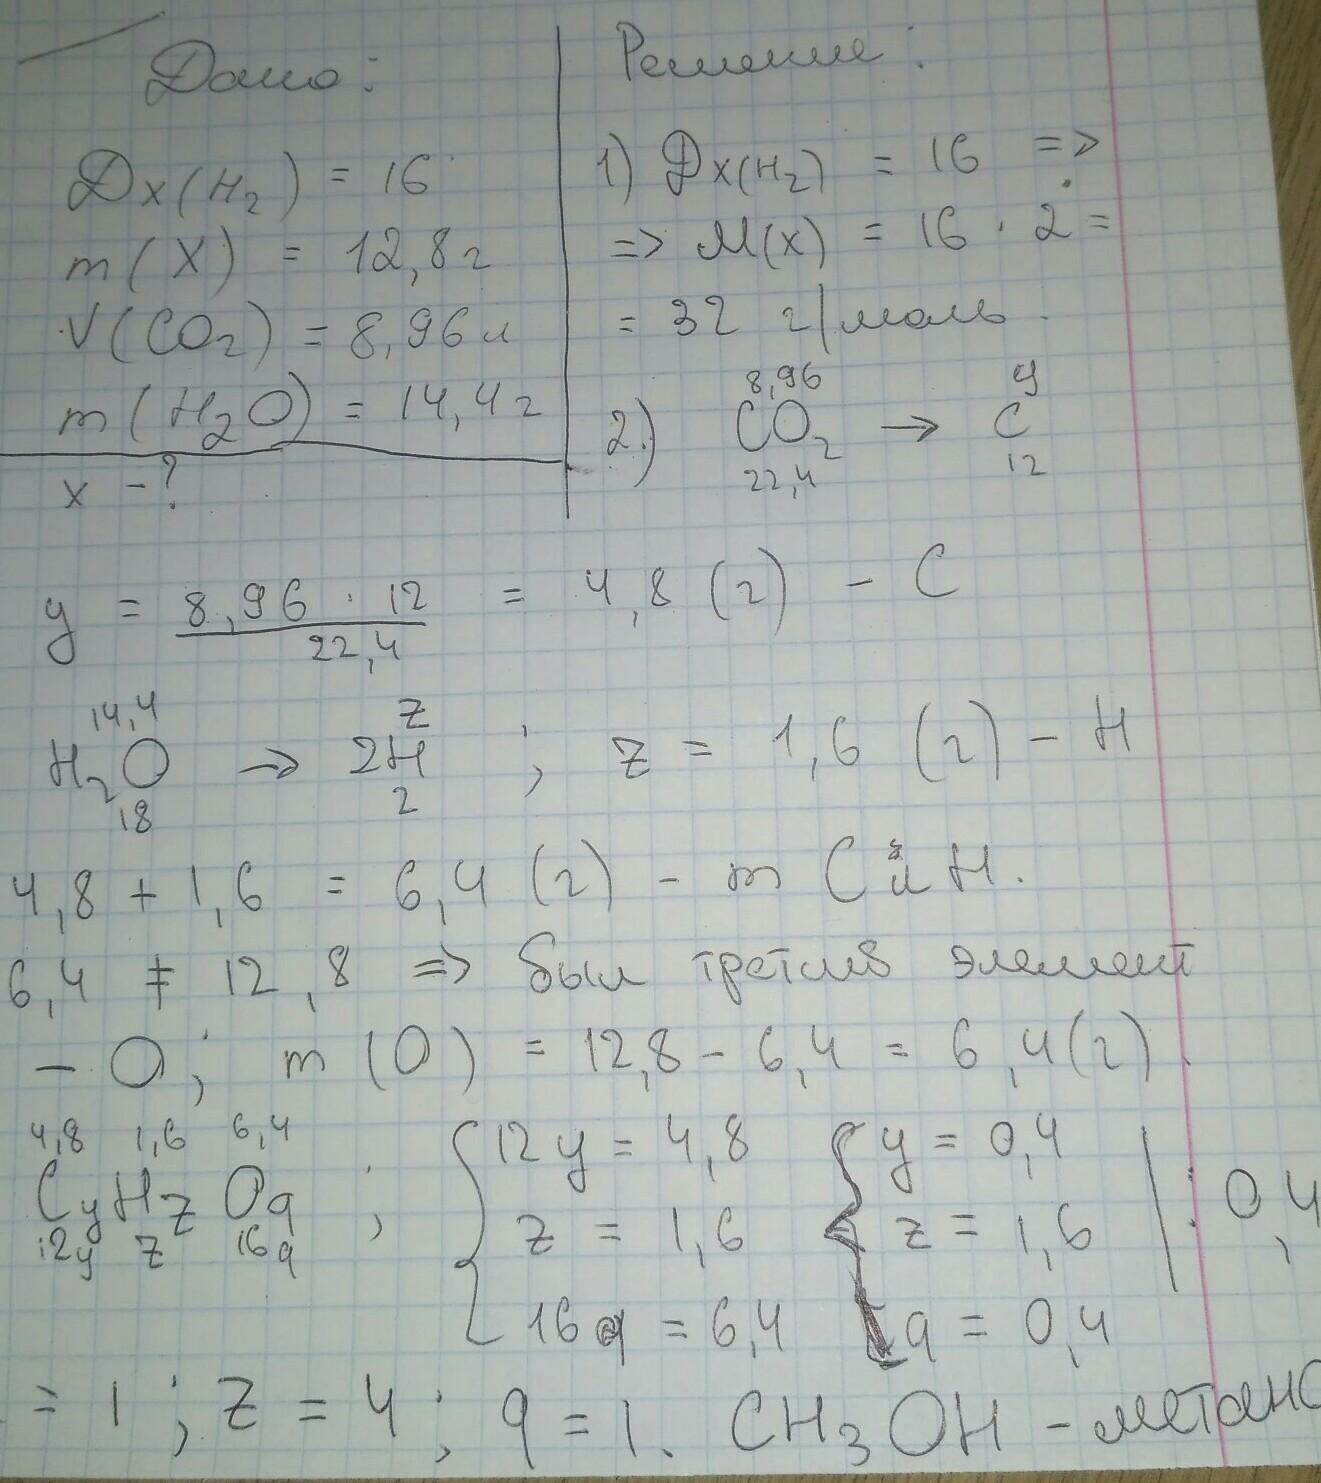 Дано:
Dx(H2) = 16
m(X) = 12,8г
V(CO2) = 8,96л
m(H2O) = 14,4г
x - ?
Решение:
1) Dx(H2) = 16 =>
=> M(x) = 16 · 2 =
= 32 г/моль.
8,96 y
2) CO2 → C
22,4 12
y = 8,96 · 12 / 22,4 = 4,8 (г) - C
14,4 z
H2O → 2H ; z = 1,6 (г) - H
18 2
4,8 + 1,6 = 6,4 (г) - m C и H.
6,4 ≠ 12,8 => был третий элемент
- O; m(O) = 12,8 - 6,4 = 6,4(г).
4,8 1,6 6,4
CyHzOq ;
12y z 16q
{ 12y = 4,8 { y = 0,4
z = 1,6 z = 1,6 | : 0,4
16q = 6,4 q = 0,4
= 1 ; z = 4 ; q = 1. CH3OH - метано